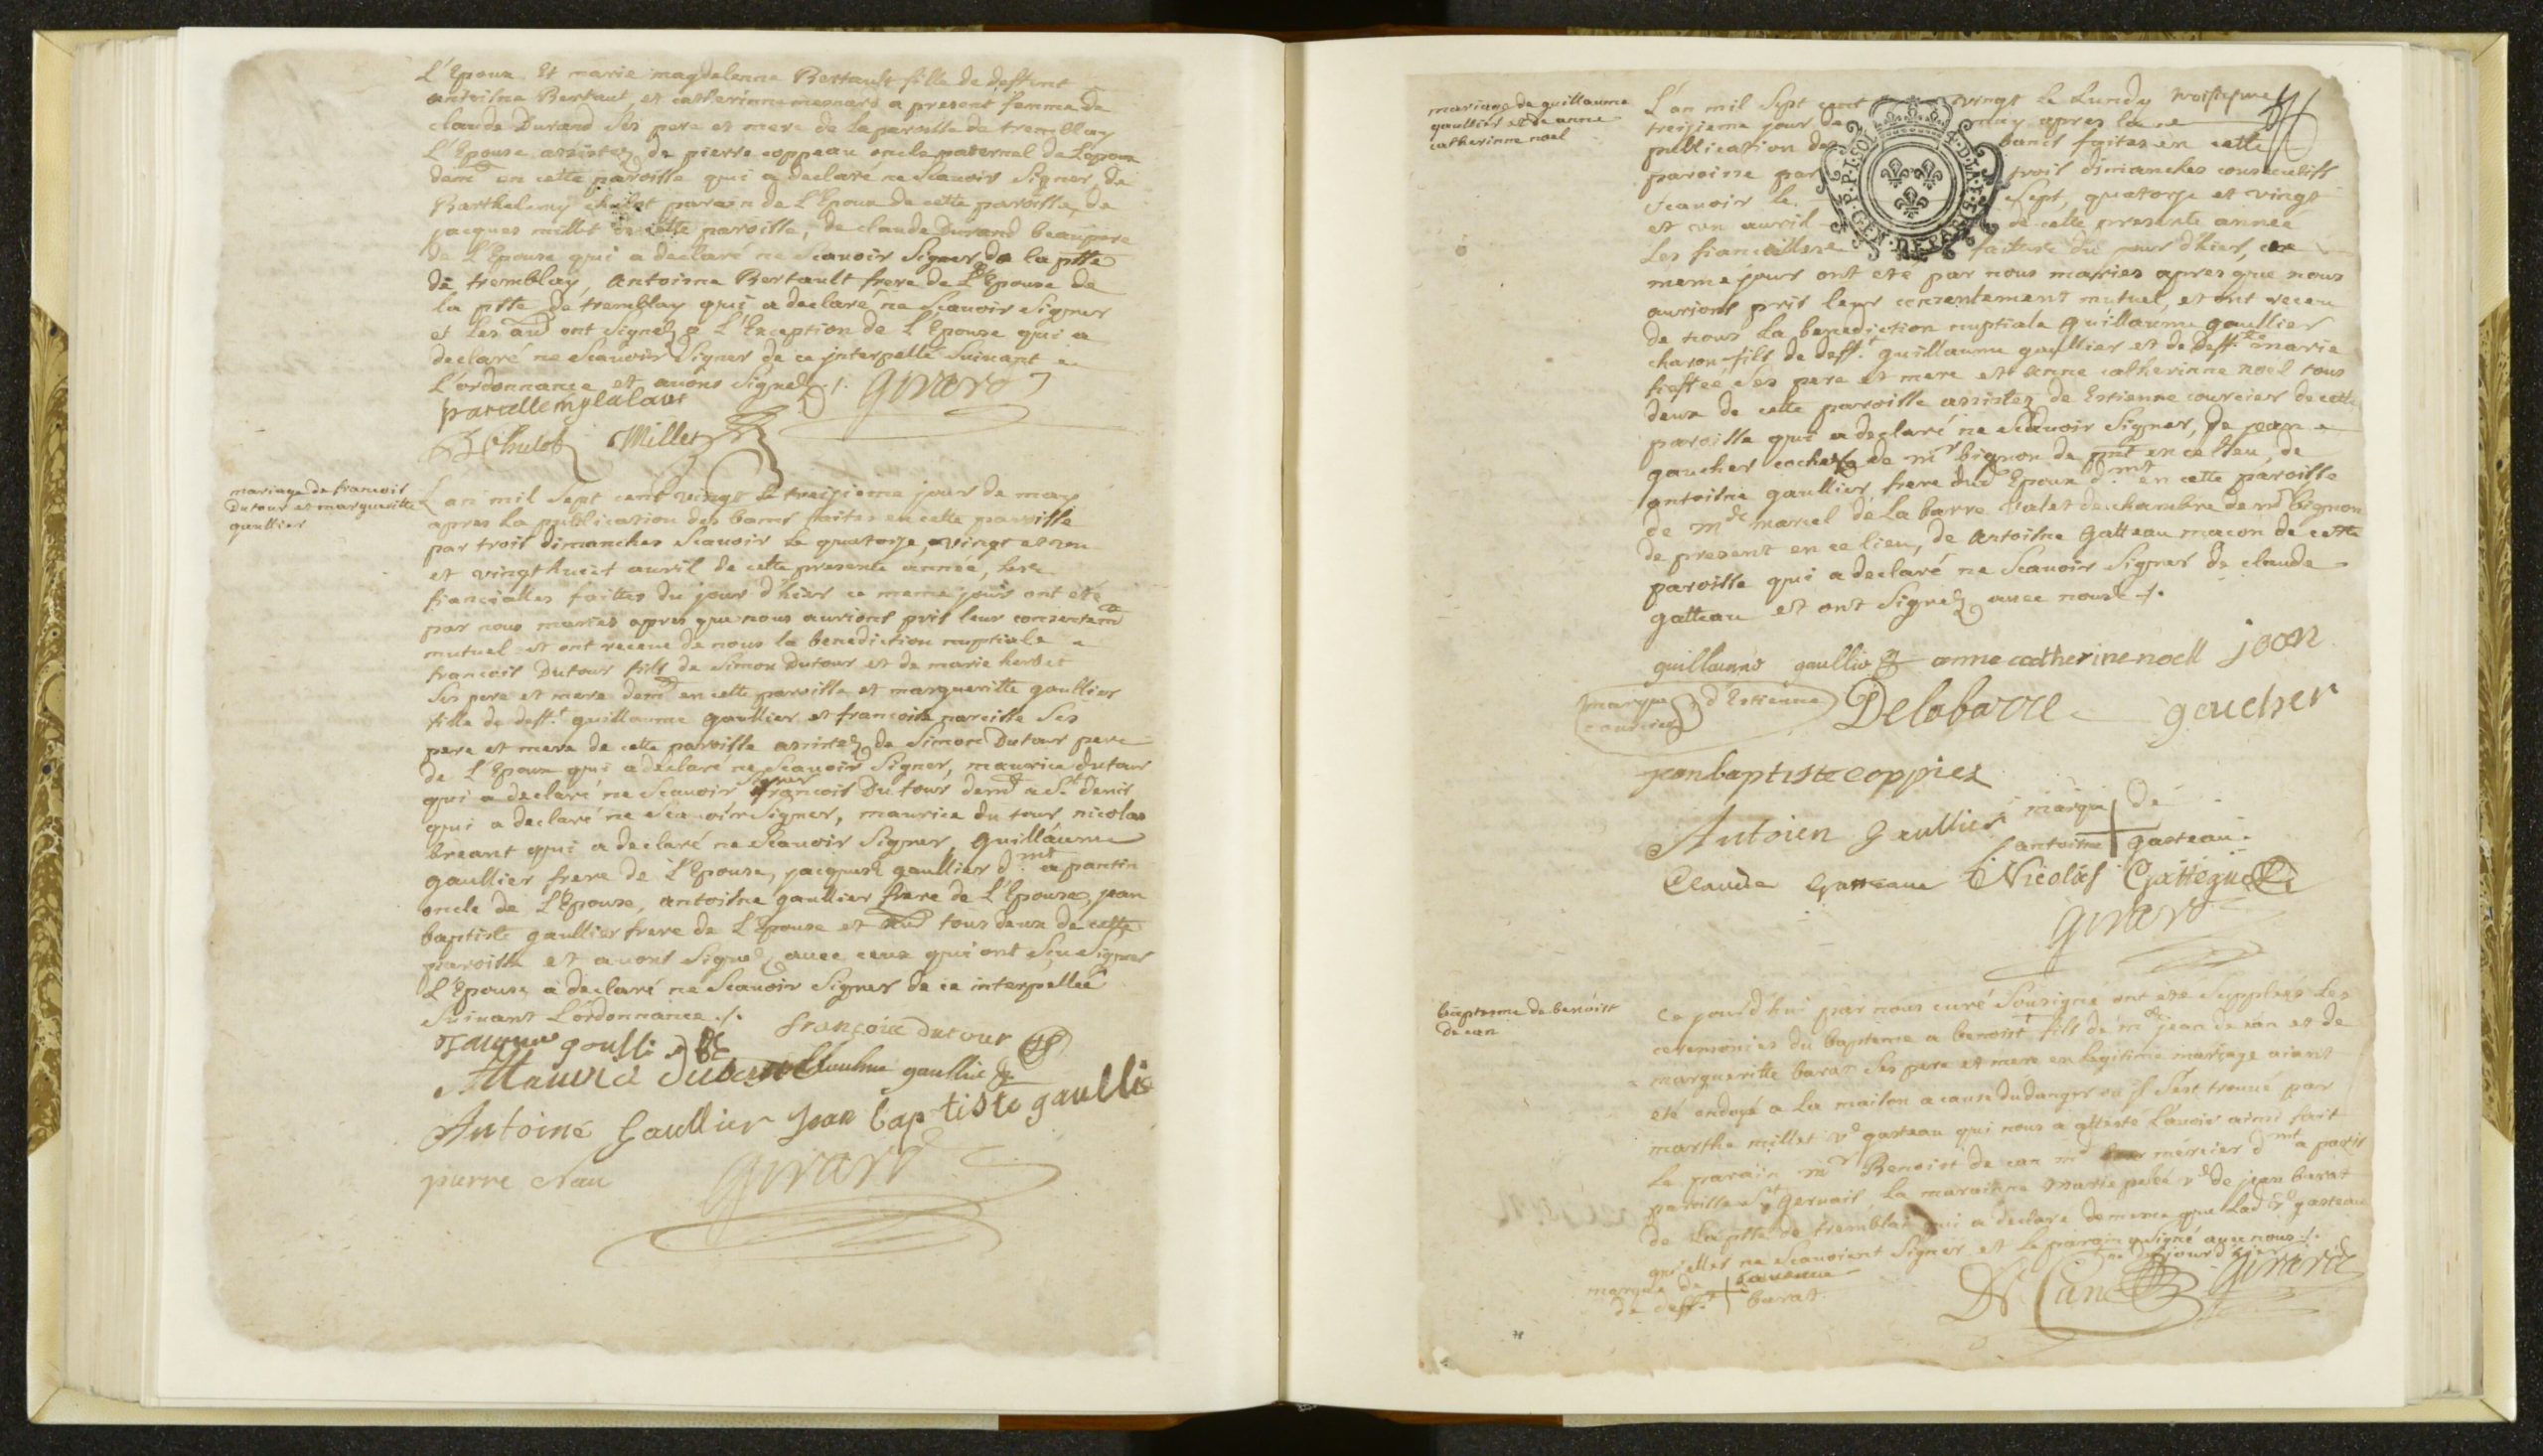 L'Epoux Et marie magdelenne Bertault fille de deffunt
antoisne Bertaut, et catherinne mesnard a present femme de
claude Durand ses pere et mere de la paroisse de tremblay
L'Epouse assistez de pierre coppeau oncle paternel de L'epoux
dem.t en cette paroisse qui a declaré ne scauoir signer de
Barthelemy chulot parain de L'Epoux de cette paroisse, de
jacques millet de cette paroisse, de claude Durand beaupere
de L'Epouse qui a declaré ne scauoir signer de la psse
de tremblay, Antoisne Bertault frere de L'Epouse de
la psse de tremblay qui a declaré ne scauoir signer
et les aud ont signez a L'Exception de L'Epouse qui a
declaré ne scauoir signer de ce jnterpellé suiuant
L'ordonnance et auons signez ./. Girard
B Chulot Millet
mariage de francois
Dutour et margueritte
gaullier
L'an mil sept cent vingt le treizieme jour de may
apres la publication des bans faites en cette paroisse
par trois dimanches scauoir le quatorze, vingt et un
et vingt huit auril de cette presente année, les
fiancialles faittes du jour d'hier ce meme jour ont eté
par nous mariés apres que nous aurions pris leur consentem.t
mutuel et ont receue de nous la benediction nuptiale
francois Dutour fils de simon Dutour et de marie
ses pere et mere dem.t en cette paroisse et margueritte gaullier
fille de deff.t guillaume gaullier et francoise narcisse ses
pere et mere de cette paroisse assistez de simon Dutour pere
de L'Epoux qui a declaré ne scauoir signer, maurice dutour
qui a declaré ne scauoir signer francois Dutour dem.t a s.t denis
qui a declaré ne scauoir signer, maurice du tour, nicolas
breant qui a declaré ne scauoir signer, guillaume
gaullier frere de L'Epouse, jacques gaullier d.mt a pantin
oncle de L'Epouse, antoisne gaullier frere de L'Epouse, jean
baptiste gaullier frere de L'Epouse et tous deux de cette
paroisse et auons signez auec ceux qui ont sçu signer
L'Epouse a declaré ne scauoir signer de ce interpellée
suiuant L'ordonnance ./. françois dutour
Maurice dutour gaullie
Antoine Gaullier Jean baptiste gaullie
pierre Girard
mariage de guillaume
gaullier et de anne
catherinne noel
L'an mil sept cent vingt le Lundy
treizieme jour de may apres la
publication des bans faites en cette
paroisse par trois dimanches consecutifs
scauoir le sept, quatorze et vingt
et un auril de cette presente année
Les fiancailles faittes du jour d'hier, ce
meme jour ont eté par nous mariés apres que nous
aurions pris leur consentement mutuel, et ont receu
de nous la benediction nuptiale guillaume gaullier
charon, fils de deff.t guillaume gaullier et de deff.te marie
ses pere et mere et anne catherinne noel tous
deux de cette paroisse assistez de Estienne courcier de cette
paroisse qui a declaré ne scauoir signer, de jean
gaucher cocher de m.r bignon de pnt en ce lieu, de
antoisne gaullier frere dud Epoux d.mt en cette paroisse
de m.r marcel de la barre valet de chambre de m.r bignon
de present en ce lieu, de antoisne gatteau macon de cette
paroisse qui a declaré ne scauoir signer de claude
gatteau et ont signez auec nous ./.
guillaume gaullie anne catherine noell jean
marque d'Estienne
courcier Delabarre gaucher
jean baptiste coppiez
Antoien Gaullier marque de
antoisne gasteau
Claude Gatteau Nicolas
Girard
baptesme de benoist
de can
Ce jourd'hui par nous curé sousigné ont eté suppléés les
ceremonies du bapteme a benoist fils de m.r jean de can et de
margueritte barat ses pere et mere en legitime mariage aiant
eté ondoyé a la maison a cause du danger ou il s'est trouué par
marthe millet v.e gasteau qui nous a attesté l'auoir ainsi fait
Le parain m.r Benoist de can m.d mercier d.mt a paris
paroisse s.t geruais La maraine marie v.e de jean barat
de la psse de tremblai qui a declaré de meme que lad v.e gasteau
qu'elles ne scauoient signer et le parain a signé auec nous ./.
marque de la veuue
de deff.t barat
De Can Girard